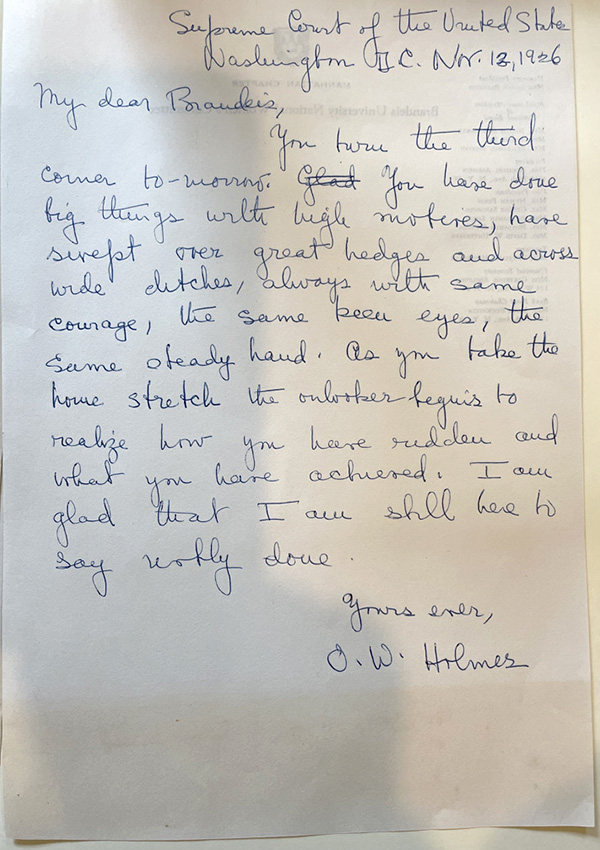 Supreme Court of the United States
Washington D C. Nov. 12, 1926
My dear Brandeis,
You turn the third
corner to-morrow. Glad You have done
big things with high motives, have
swept over great hedges and across
wide ditches, always with same
courage, the same keen eyes, the
same steady hand. As you take the
home stretch the onlooker begins to
realize how you have ridden and
what you have achieved. I am
glad that I am still here to
say nobly done.
Yours ever,
O. W. Holmes